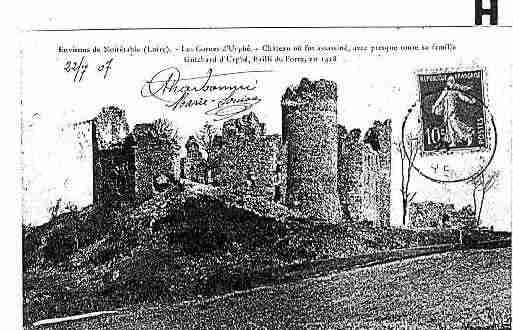 H
Environs de Noirétable (Loire). - Les Cornes d'Urphé. - Château où fut assassiné, avec presque toute sa famille
Guichard d'Urphé, Bailli du Forez, en 1418
22/7 07
Charbonnier
Marie-Louise
REPUBLIQUE FRANÇAISE
10
POSTES